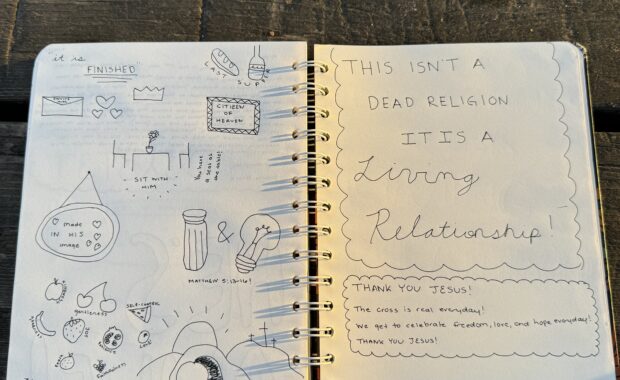 "it is
FINISHED"
LAST SUPPER
CITIZEN
OF
HEAVEN
SIT WITH
HIM
You have
a seat at
the table!
made
IN HIS
image
&
MATTHEW 5:13-16!
gentleness
SELF-CONTROL
JOY
LOVE
THIS ISN'T A
DEAD RELIGION
IT IS A
Living
Relationship!
THANK YOU JESUS!
The cross is real everyday!
We get to celebrate freedom, love, and hope everyday!
THANK YOU JESUS!